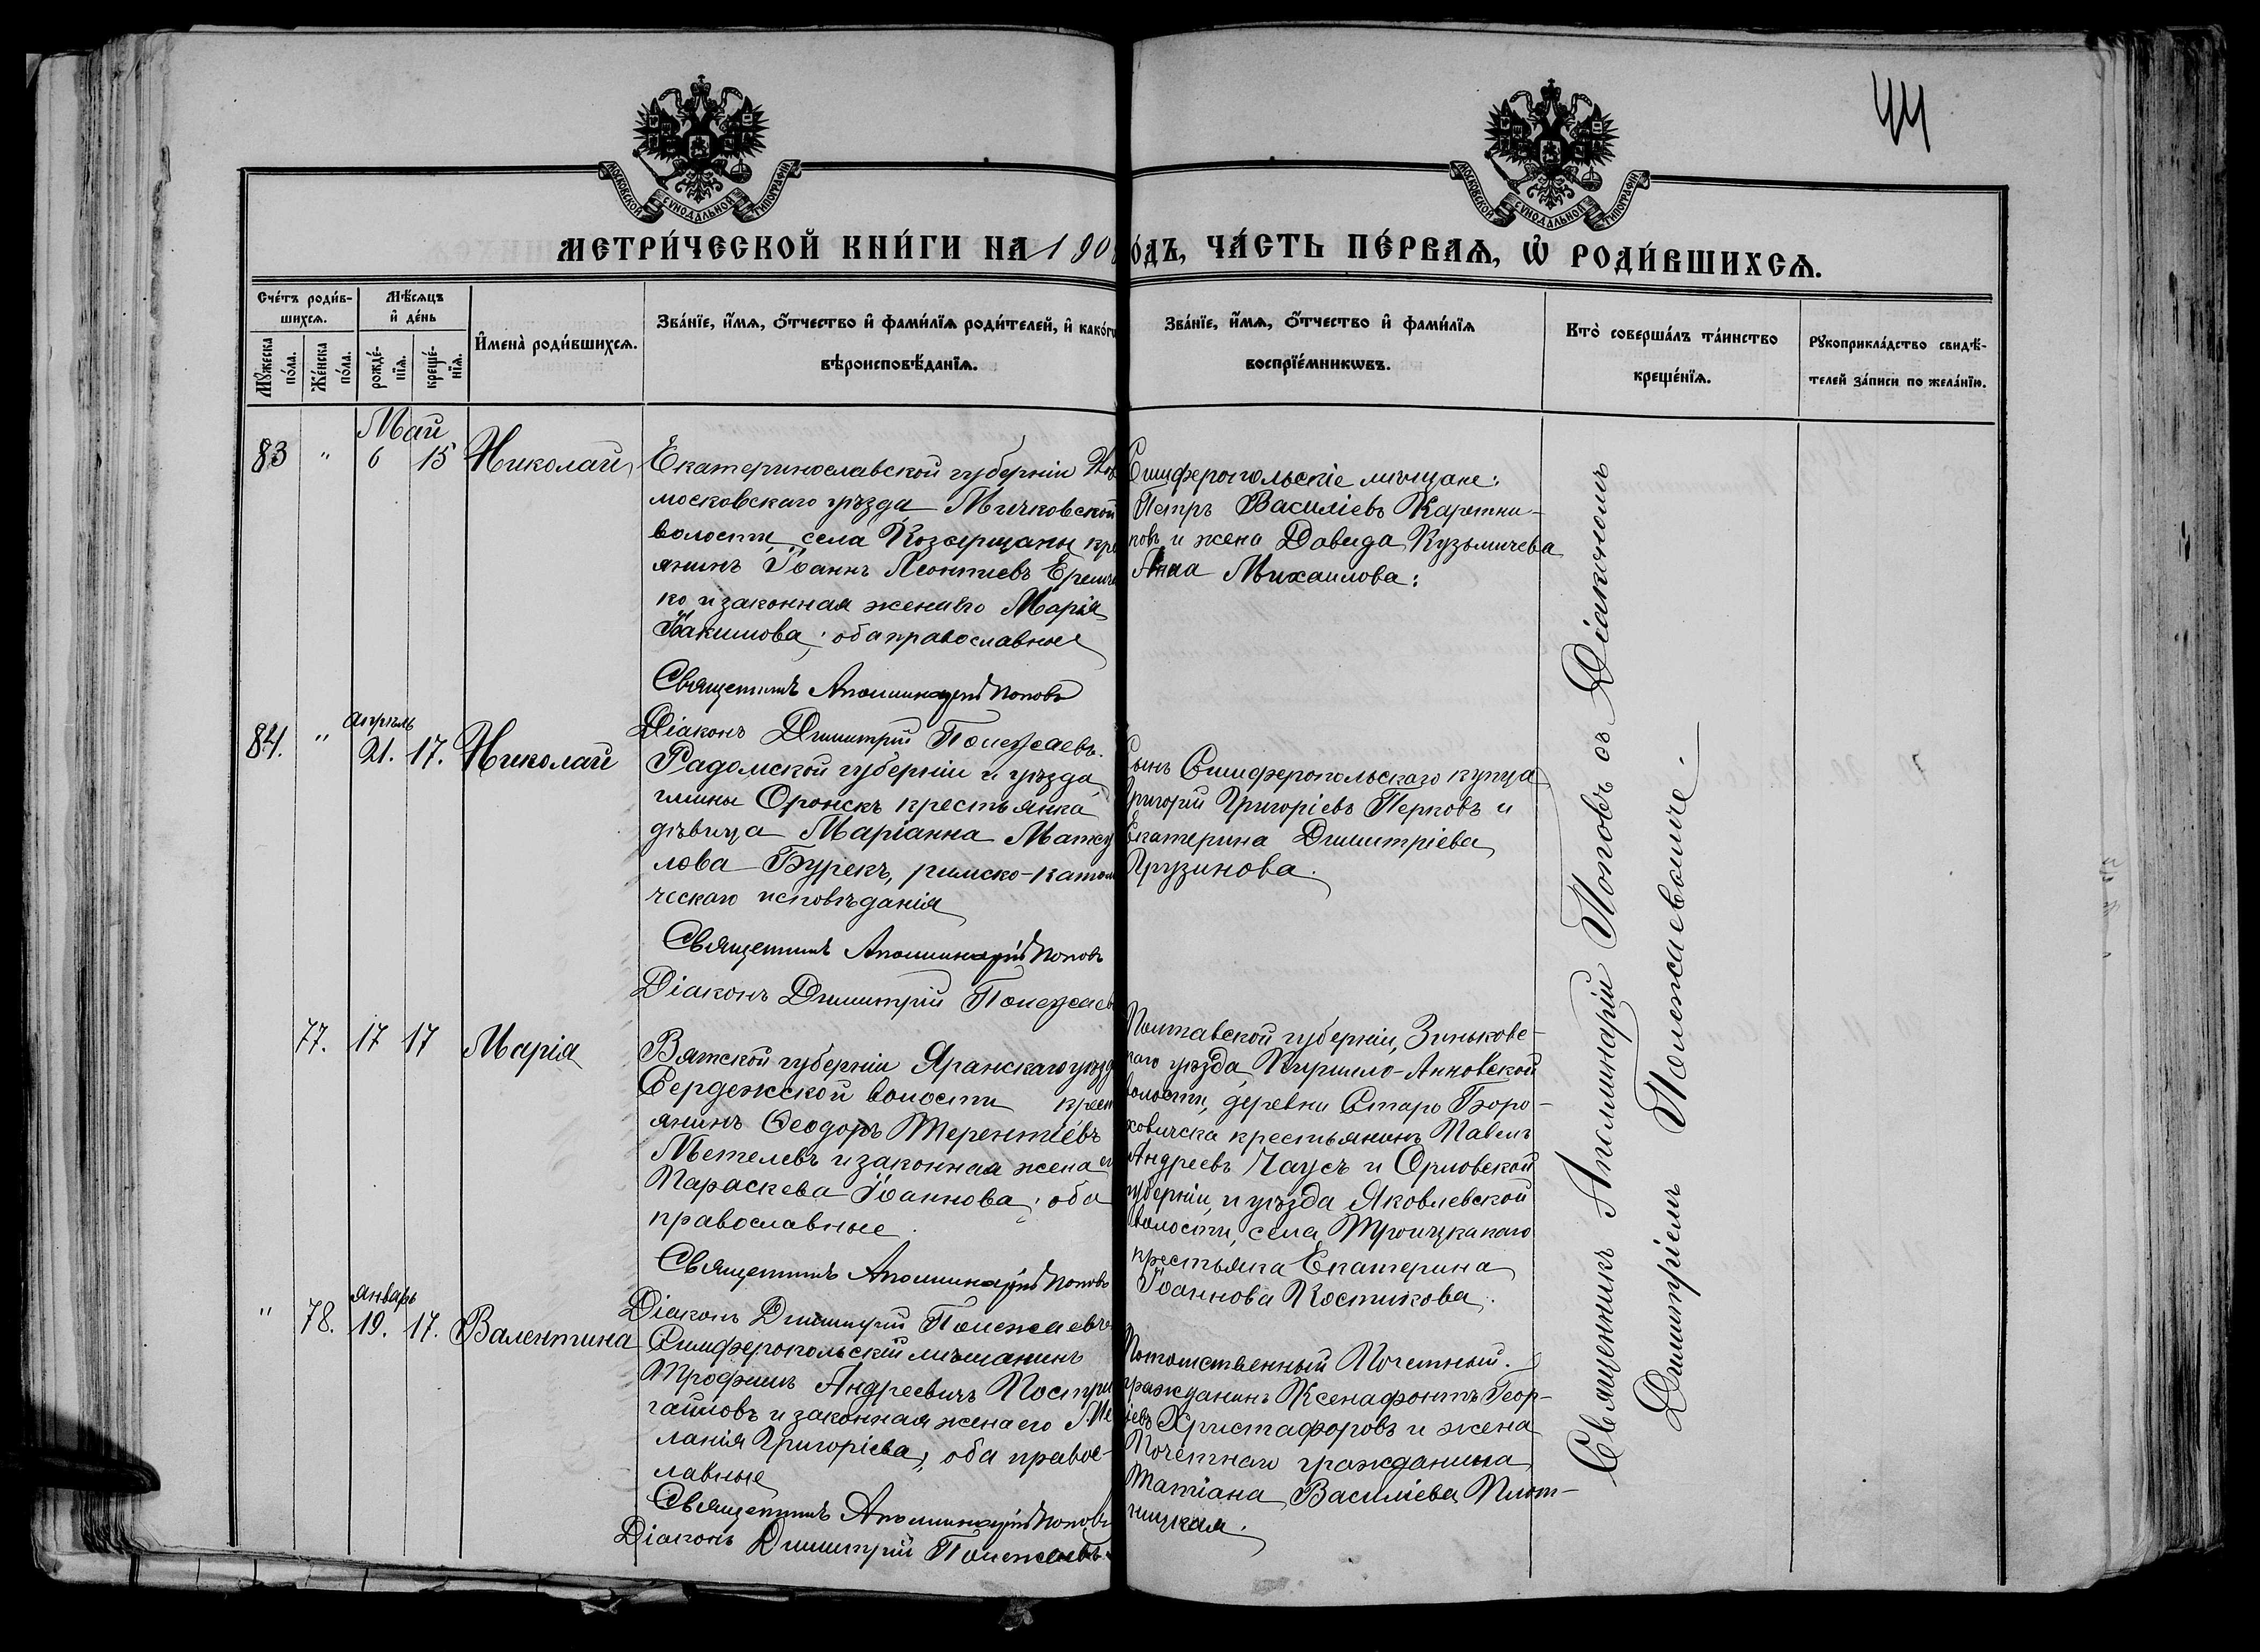 44
МОСКОВСКОЙ СѴНОДАЛЬНОЙ ТИПОГРАФІИ
МОСКОВСКОЙ СѴНОДАЛЬНОЙ ТИПОГРАФІИ
МЕТРИ́ЧЕСКОЙ КНИ́ГИ НА 190
О́ДЪ, ЧА́СТЬ ПЕ́РВАѦ, Ѡ҆ РОДИ́ВШИХСѦ.
Сче́тъ роди́в-
шихсѧ.
Мѹ́жеска по́ла.
Же́нска по́ла.
Мѣ́сѧцъ
и҆ де́нь
рожде́-
нїѧ.
креще́-
нїѧ.
И҆мена̀ роди́вшихсѧ.
Зва́нїе, и҆́мѧ, ѻ҆́тчество и҆ фами́лїѧ роди́телей, и҆ како́гѡ
вѣроисповѣ́данїѧ.
Зва́нїе, и҆́мѧ, ѻ҆́тчество и҆ фами́лїѧ
воспрїе́мникѡвъ.
Кто̀ соверша́лъ та́инство
креще́нїѧ.
Рѹкоприкла́дство свидѣ́-
телей за́писи по жела́нїю.
83 " Май 6 15 Николай
Екатеринославской губерніи Нов
московскаго уѣзда
волости села Козырщаны кре
янинъ Іоаннъ Леонтіевъ
ко и законная жена его Марія
Іоакимова; оба православные
Священникъ Аполлинарій Поповъ
Діаконъ Димитрій Полежаевъ.
Симферопольскіе мѣщане:
Петръ Василіевъ Каретни-
ковъ и жена Давида Кузьмичева
Анна Михаилова:
84. " Апрѣль 21. 17. Николай
Радомской губерніи и уѣзда
гмины Оронскъ крестьянка
дѣвица Маріанна
лова Бурекъ, римско-катол
ческаго исповѣданія
Священникъ Аполлинарій Поповъ
Діаконъ Димитрій Полежаев
Сынъ Симферопольскаго купца
Григорій Григоріевъ Перковъ и
Екатерина Димитріева
Грузинова.
77. 17 17 Марія
Вятской губерніи Яранскаго уѣзд
Сердежской волости крест
янинъ Ѳеодоръ Терентіевъ
Метелевъ и законная жена ег
Параскева Іоаннова; оба
православные.
Священникъ Аполлинарій Поповъ
Діаконъ Димитрій Полежаевъ
Полтавской губерніи, Зиньковс-
каго уѣзда, Кирилло-Анновской
волости, деревни Старо
крестьянинъ Павелъ
Андреевъ Чаусъ и Орловской
губерніи и уѣзда Яковлевской
волости, села
крестьянка Екатерина
Іоаннова Костикова.
" 78. Январь 19. 17. Валентина
Симферопольскій мѣщанинъ
Трофимъ Андреевичъ
и законная жена его Ме
ланія Григоріева; оба правос-
лавные
Священникъ Аполлинарій Поповъ
Діаконъ Димитрій Полежаевъ.
Потомственный Почетный
гражданинъ Ксенафонтъ Геор-
іевъ Христафоровъ и жена
Почетнаго гражданина
Татіана Василіева Плот-
ницкая.
Священникъ Аполлинарій Поповъ съ Діакономъ
Димитріемъ Полежаевымъ.